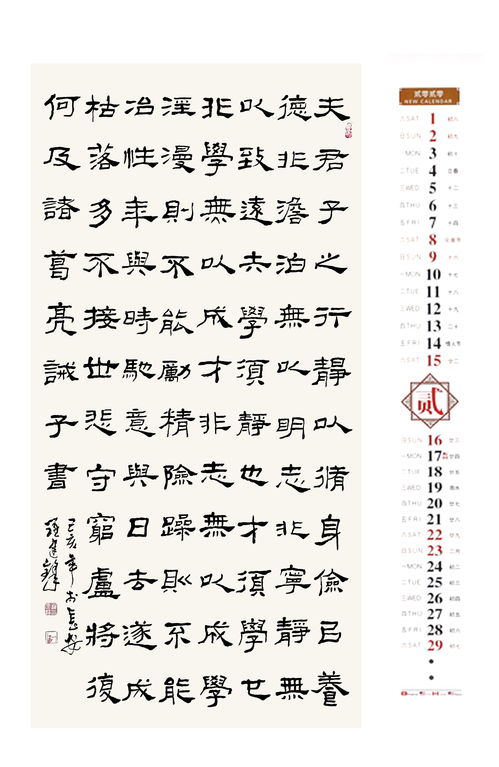 夫君子之行靜以脩身儉以養
德非澹泊無以明志非寧靜無
以致遠夫學須靜也才須學也
非學無以成才非志無以成學
淫漫則不能勵精險躁則不能
冶性年與時馳意與日去遂成
枯落多不接世悲守窮盧將復
何及諸葛亮誡子書
己亥年於長安
貳零貳零
NEW CALENDAR
六 SAT 1 初八
日 SUN 2 初九
一 MON 3 初十
二 TUE 4 立春
三 WED 5 十二
四 THU 6 十三
五 FRI 7 十四
六 SAT 8 元宵节
日 SUN 9 十六
一 MON 10 十七
二 TUE 11 十八
三 WED 12 十九
四 THU 13 二十
五 FRI 14 情人节
六 SAT 15 廿二
贰
日 SUN 16 廿三
一 MON 17 廿四
二 TUE 18 廿五
三 WED 19 雨水
四 THU 20 廿七
五 FRI 21 廿八
六 SAT 22 廿九
日 SUN 23 二月
一 MON 24 初二
二 TUE 25 初三
三 WED 26 初四
四 THU 27 初五
五 FRI 28 初六
六 SAT 29 初七